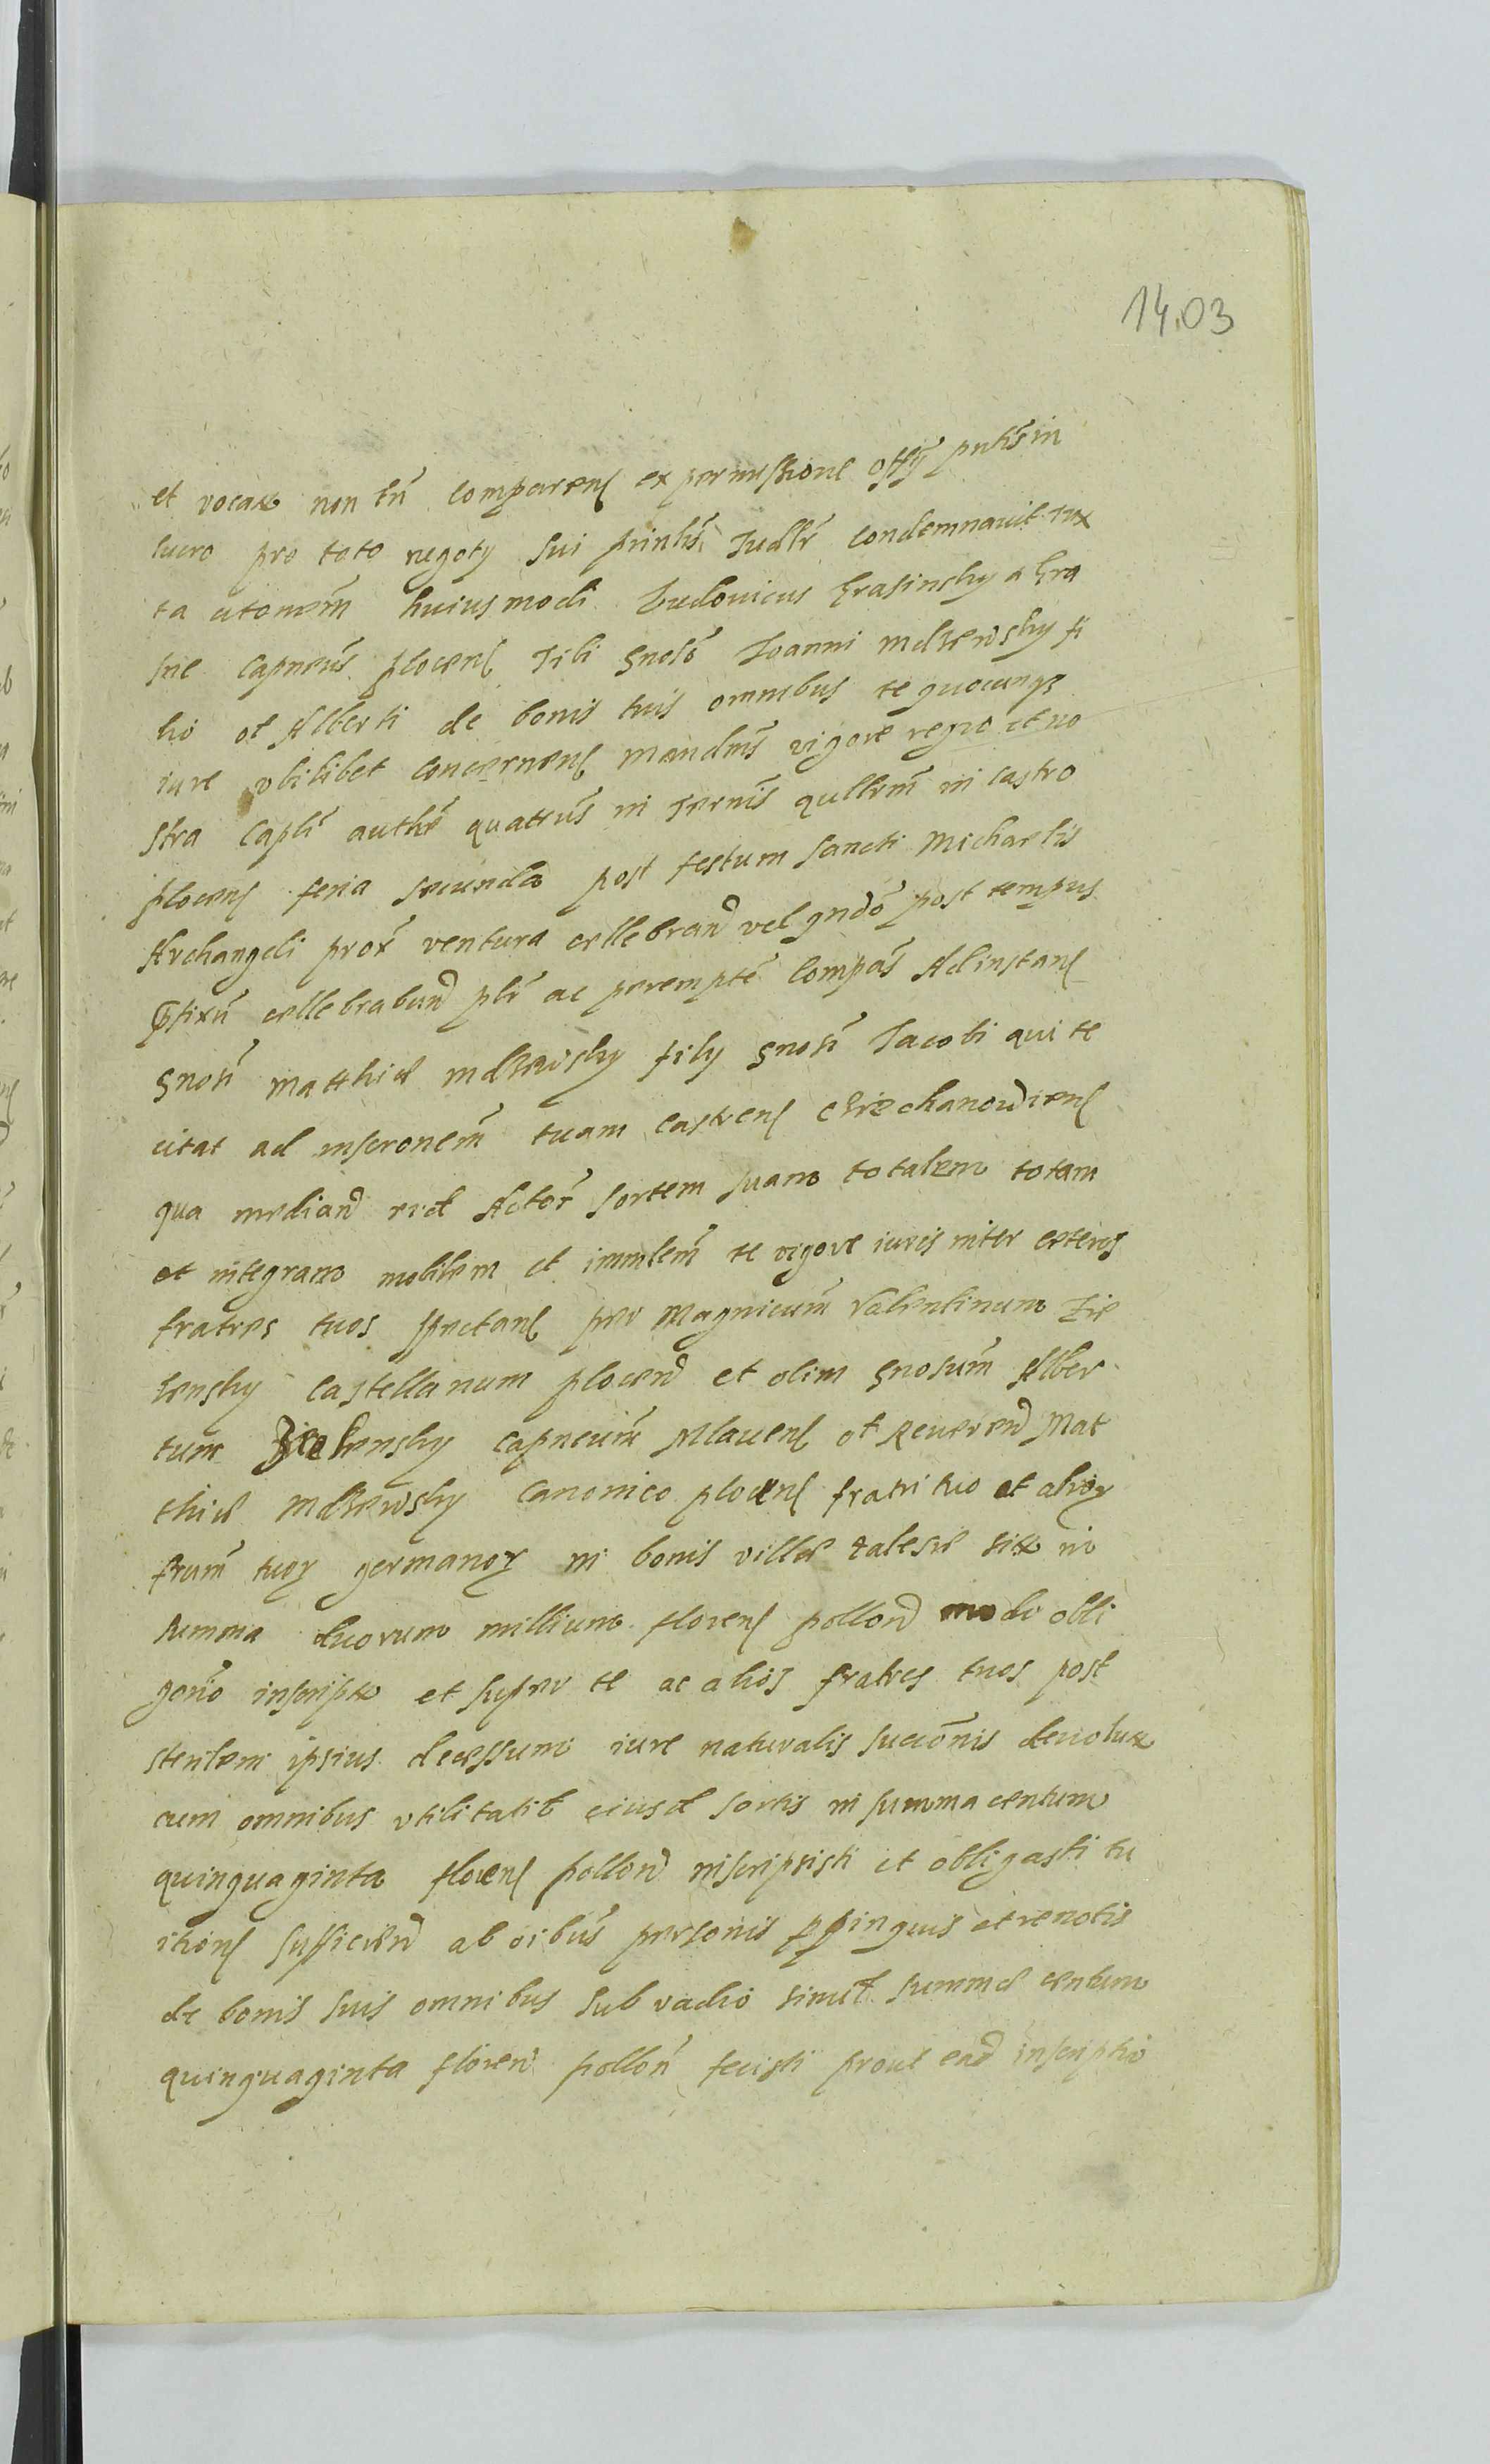 14.03
et vocat non tñ comparens ex permissione offy pntis in
lucro pro toto negoty sui printis Judlr condemnavit Jux
ta citonem huiusmodi Ludovicus Krasinsky a Kra
sne Capneus plocens Tibi Gnoso Joanni Mdzewsky fi
lio ol Alberti de bonis tuis omnibus te quocunqз
iure vbilibet concernens mandmus vigore regio et no
stra Capli authe quatnus in Ternis qullrm in castro
plocens feria secunda post festum sancti Michaelis
Archangeli prox ventura cellebrand vel qndo post tempus
pfixu cellebrabund plr ac perempte compas Ad instans
Gnosi Matthiæ Mdzewsky fily Gnosi Jacobi qui te
citat ad inscronem tuam castrens Cziechanowiens
qua mediand eid Actori sortem suam totalem totam
et integram mobilem et immlem te vigore iuris inter ceteros
fratres tuos spectans per Magnicum Valentinum Zie
lensky Castellanum plocen et olim Gnosum Alber
tum Zielensky Capneum Mlavens ol Reverend Mat
thiæ Mdzewsky Canonico plocens fratri tuo et alioꝝ
frum tuoꝝ germanoꝝ in bonis villæ zalesie sit in
summa duorum millium florens pollon modo obli
gorio inscripto et super te ac alios fratres tuos post
sterilem ipsius decessum iure naturalis succonis devolut
cum omnibus vtilitatib eiusd sortis in summa centum
quinquaginta florens pollon inscripsisti et obligasti tu
itions sufficien ab oibus personis ppinquis et remotis
de bonis suis omnibus sub vadio simil summæ centum
quinquaginta floren pollon fecisti prout ead inscriptio